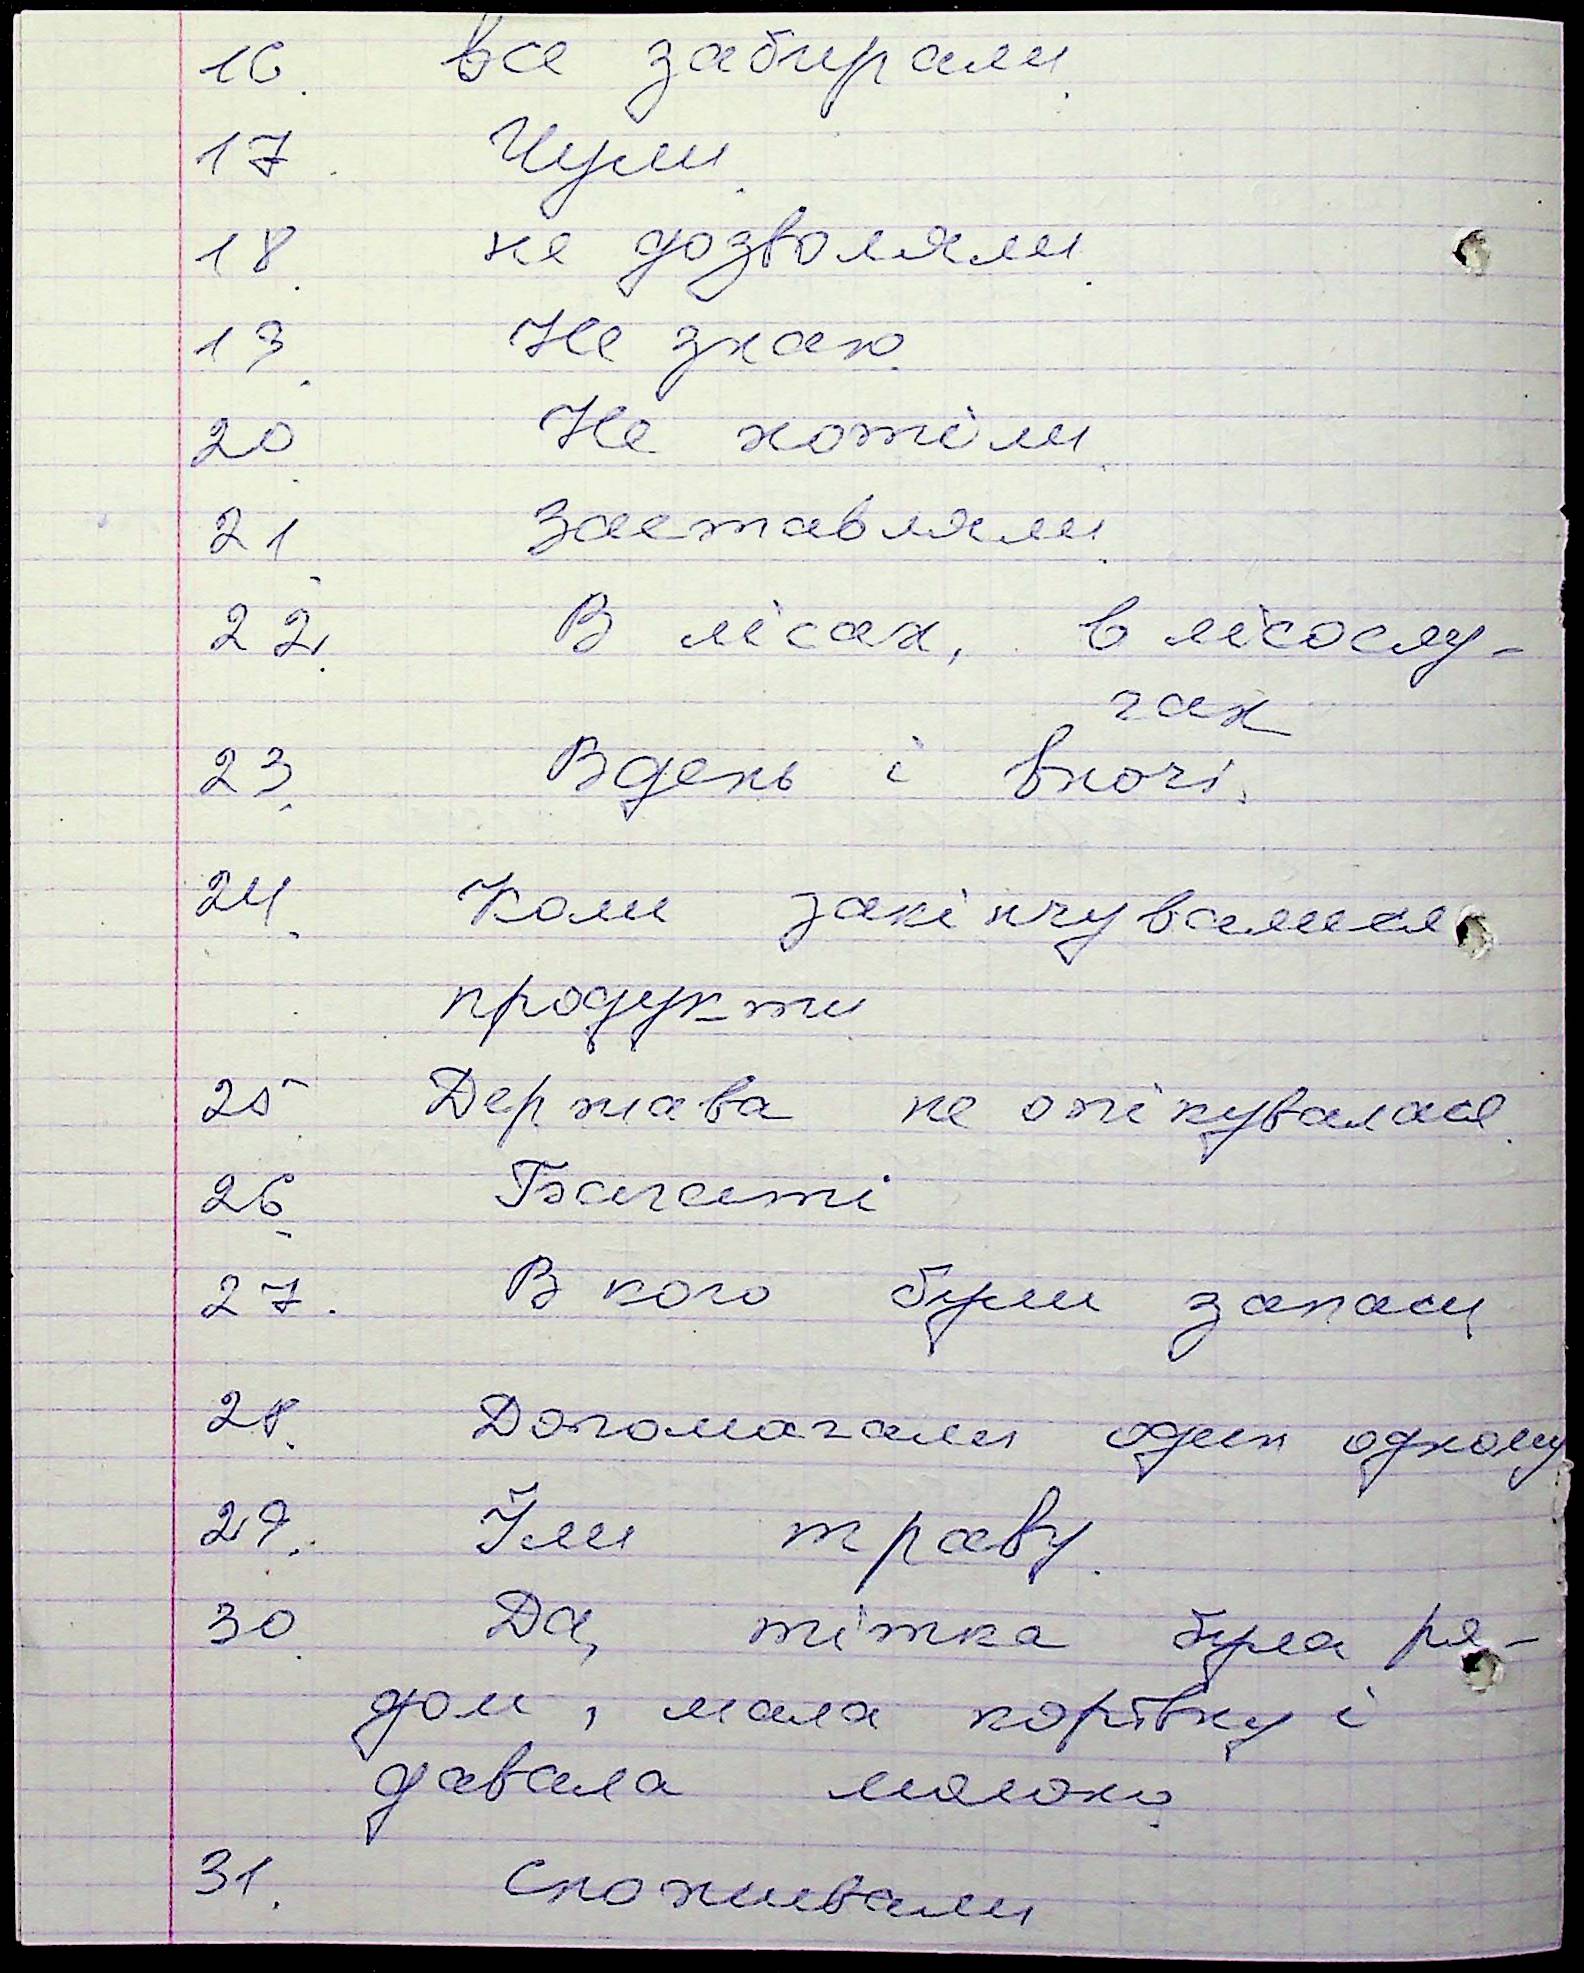 16. все забирали.
17. Чули.
18. не дозволяли.
19. Не знаю.
20. Не хотіли.
21. Заставляли.
22. В лісах, в лісослу-
гах
23. Вдень і вночі.
24. Коли закінчувалися
продукти
25. Держава не опікувалася.
26. Багаті
27. В кого були запаси
28. Допомагали один одному
29. Їли траву.
30. Да, тітка була ря-
дом, мала корівку і
давала молоко.
31. Споживали